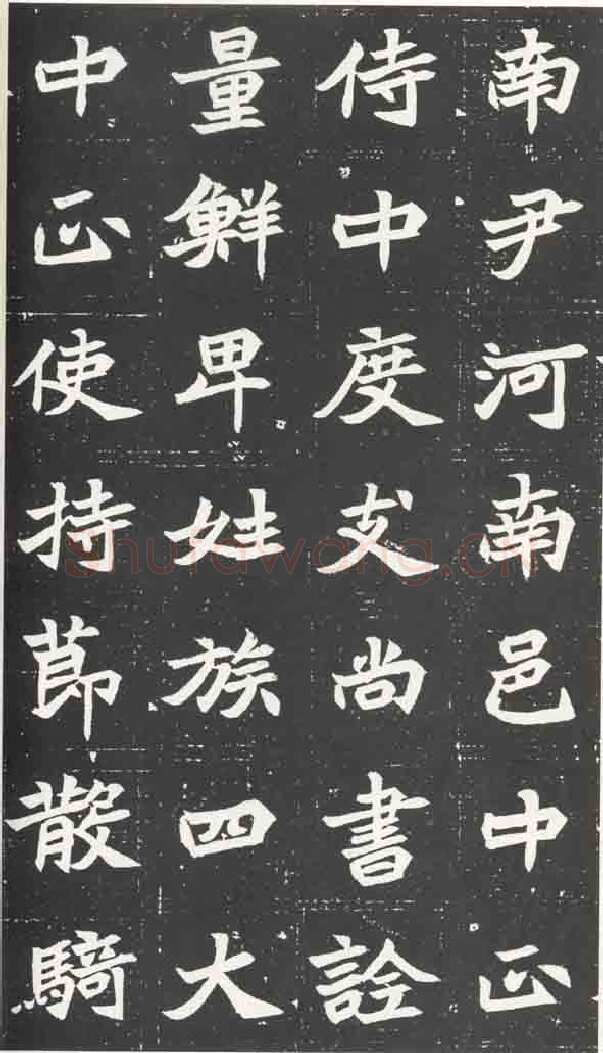 南尹河南邑中正
侍中度支尚書詮
量鮮卑姓族四大
中正使持節散騎
shufawang.cn